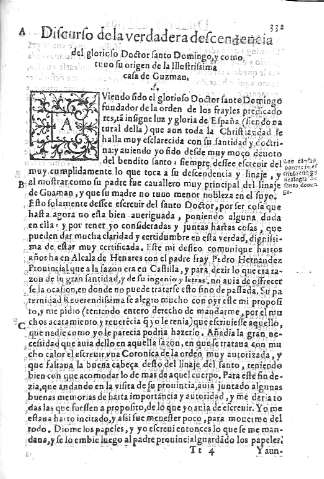 332
A
Discurso de la verdadera descendencia
del glorioso Doctor santo Domingo, y como
tuuo su origen de la Illustrissima
casa de Guzman.
AViendo sido el glorioso Doctor santo Domingo
fundador de la orden de los frayles predicado
res, tã insigne luz y gloria de España (siendo na
tural della) que aun toda la Christiandad se
halla muy esclarecida con su santidad y doctri-
na: y auiendo yo sido desde muy moço deuoto
del bendito santo: siempre dessee escreuir del
muy cumplidamente lo que toca a su descendencia y linaje, y
B
el mostrar como su padre fue cauallero muy principal del linaje
de Guzman, y que su madre no tuuo menor nobleza en el suyo.
Esto solamente dessee escreuir del santo Doctor, por ser cosa que
hasta agora no esta bien aueriguada, poniendo alguna duda
en ella: y por tener yo consideradas y juntas hartas cosas, que
pueden dar mucha claridad y certidumbre en esta verdad, dignissi
ma de estar muy certificada. Este mi desseo comunique hartos
años ha en Alcala de Henares con el padre fray Pedro Hernandez
Prouincial que a la sazon era en Castilla, y para dezir lo que era ra-
zon de su gran santidad, y de su ingenio y letras, no auia de ofrecer
se la ocasion, en donde no puede tratarse esto sino de passada. Su pa
ternidad Reuerendissima se alegro mucho con oyr este mi proposi
to, y me pidio (teniendo entero derecho de mandarme, por el mu
C
chos acatamiento y reuerēcia q̄ yo le tenia) que escriuiesse aquello,
que nadie como yo le parecia podria hazerlo. Añadia la gran ne-
cessidad que auia dello en aquella sazon, en que se trataua con mu
cho calor el escreuir vna Coronica de la orden muy autorizada, y
que faltaua la buena cabeça desto del linaje del santo, teniendo
bien con que acomodar lo de mas de aquel cuerpo. Para este fin de-
zia, que andando en la visita de su prouincia, auia juntado algunas
buenas memorias de harta importancia y autoridad, y me daria to
das las que fuessen a proposito, de lo que yo auia de escreuir. Yo me
estaua harto incitado, y assi fue menester poco, para mouerme del
todo. Diome los papeles, y yo escreui entonces lo que se me man-
daua, y se lo embie luego al padre prouincial guardãdo los papeles.
Tt 4
Y aun-